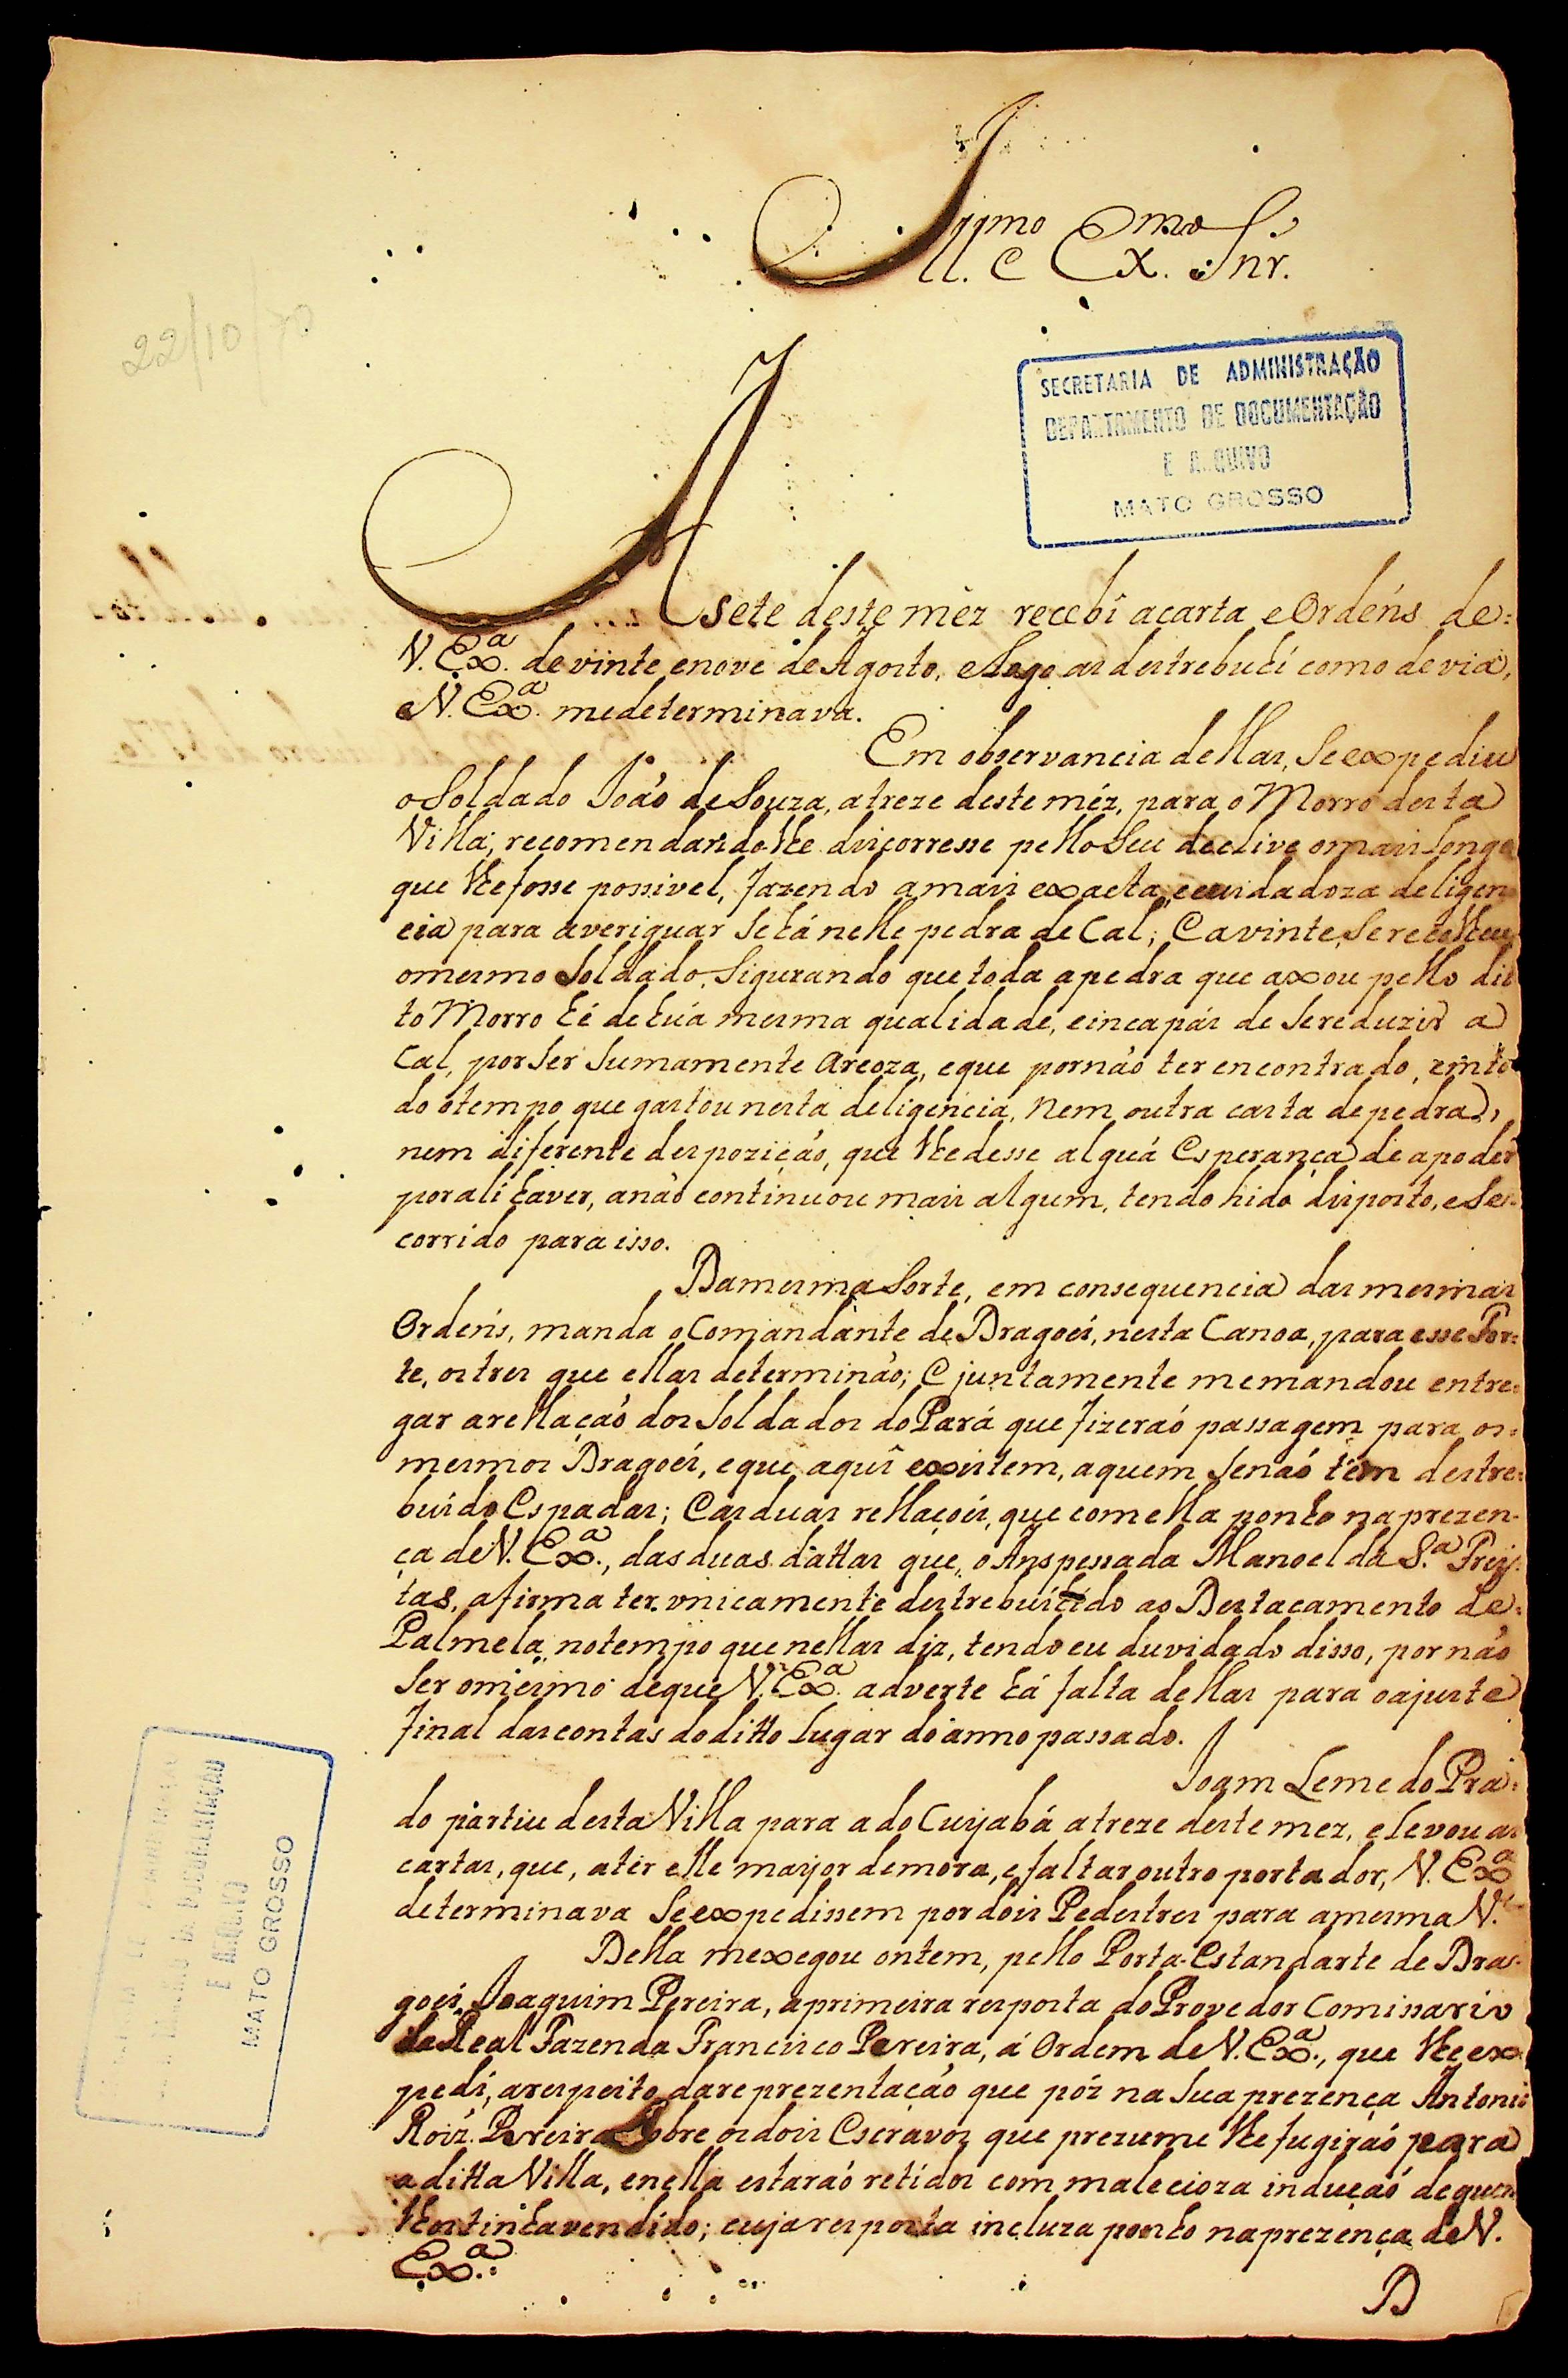 Ill.mo e Ex.mo Snr.
22/10/70
SECRETARIA DE ADMINISTRAÇÃO
DEPARTAMENTO DE DOCUMENTAÇÃO
E ARQUIVO
MATO GROSSO
A sete deste mêz recebî acarta e Ordéns de=
V. Ex.ª de vinte enove de Agosto, elogo as destrebuhí como devia,
eV. Ex.ª medeterminava.
Em observancia dellas, Se expediu
oSoldado João deSouza, atreze deste mêz, para o Morro desta
Villa; recomendandolhe discorresse pelloSeu declive omais longe
que lhefosse possivel, fazendo amais exacta, ecuidadoza deligen
cia para averiguar Sehá nelle pedra de Cal; Eavinte, Se recolheu
omesmo Soldado, Sigurando que toda apedra que axou pello dit
to Morro hé de huá mesma qualidade, eincapás de Sereduzir a
Cal, por Ser Sumamente Areoza, eque pornão ter encontrado, emto
do otempo que gastou nesta deligencia, Nem outra casta depedra,
nem diferente despozição, que lhedesse algũa Esperança de apodér
porali haver, anão continuou mais algum, tendo hido disposto, eSo
corrido para isso.
Damesma Sorte, em consequencia das mesmas
Ordéns, manda oComandante deDragoés, nesta Canoa, para esse For=
te, os tres que ellas determinão; E juntamente memandou entre=
gar arellação dos Soldados doPará que fizeraó passagem para os=
mesmos Dragoés, eque aquî existem, aquem Senaó tem destre=
buido Espadas; Eas duas rellaçoés, que comella ponho naprezen-
ça deV. Ex.ª, das duas dattas que, oAnspessada Manoel da S.ª Frei=
tas, afirma ter vnicamente destrebuihido ao Destacamento de=
Palmela, notempo que nellas dis, tendo eu duvidado disso, por não
Ser omesmo deque V. Ex.ª adverte há falta dellas para oajuste
final dascontas doditto Lugar do anno passado.
Joam Leme do Pra=
do partiu desta Villa para ado Cuyabá atreze deste mez, elevou as
cartas, que, atér elle mayor demora, efaltar outro portador, V. Ex.ª
determinava Se expedissem por dois Pedestres para amesma V.ª
Della mexegou ontem, pello Porta-Estandarte de Dra=
goés Joaquim Pereira, aprimeira resposta doProvedor Comissario
daReal Fazenda Francisco Pereira, á Ordem deV. Ex.ª, que lhe ex
pedí, arespeito dareprezentação que pôz na Sua prezença Antonio
Roiz. Pereira Sobre osdois Escravos que prezume lhe fugiraó para
aditta Villa, enella estaraó retidos com malecioza induçaó dequem
lhostinhavendido; cuja resposta incluza ponho naprezença deV.
Ex.ª:
D
DEPARTAMENTO DE DOCUMENTAÇÃO
E ARQUIVO
MATO GROSSO